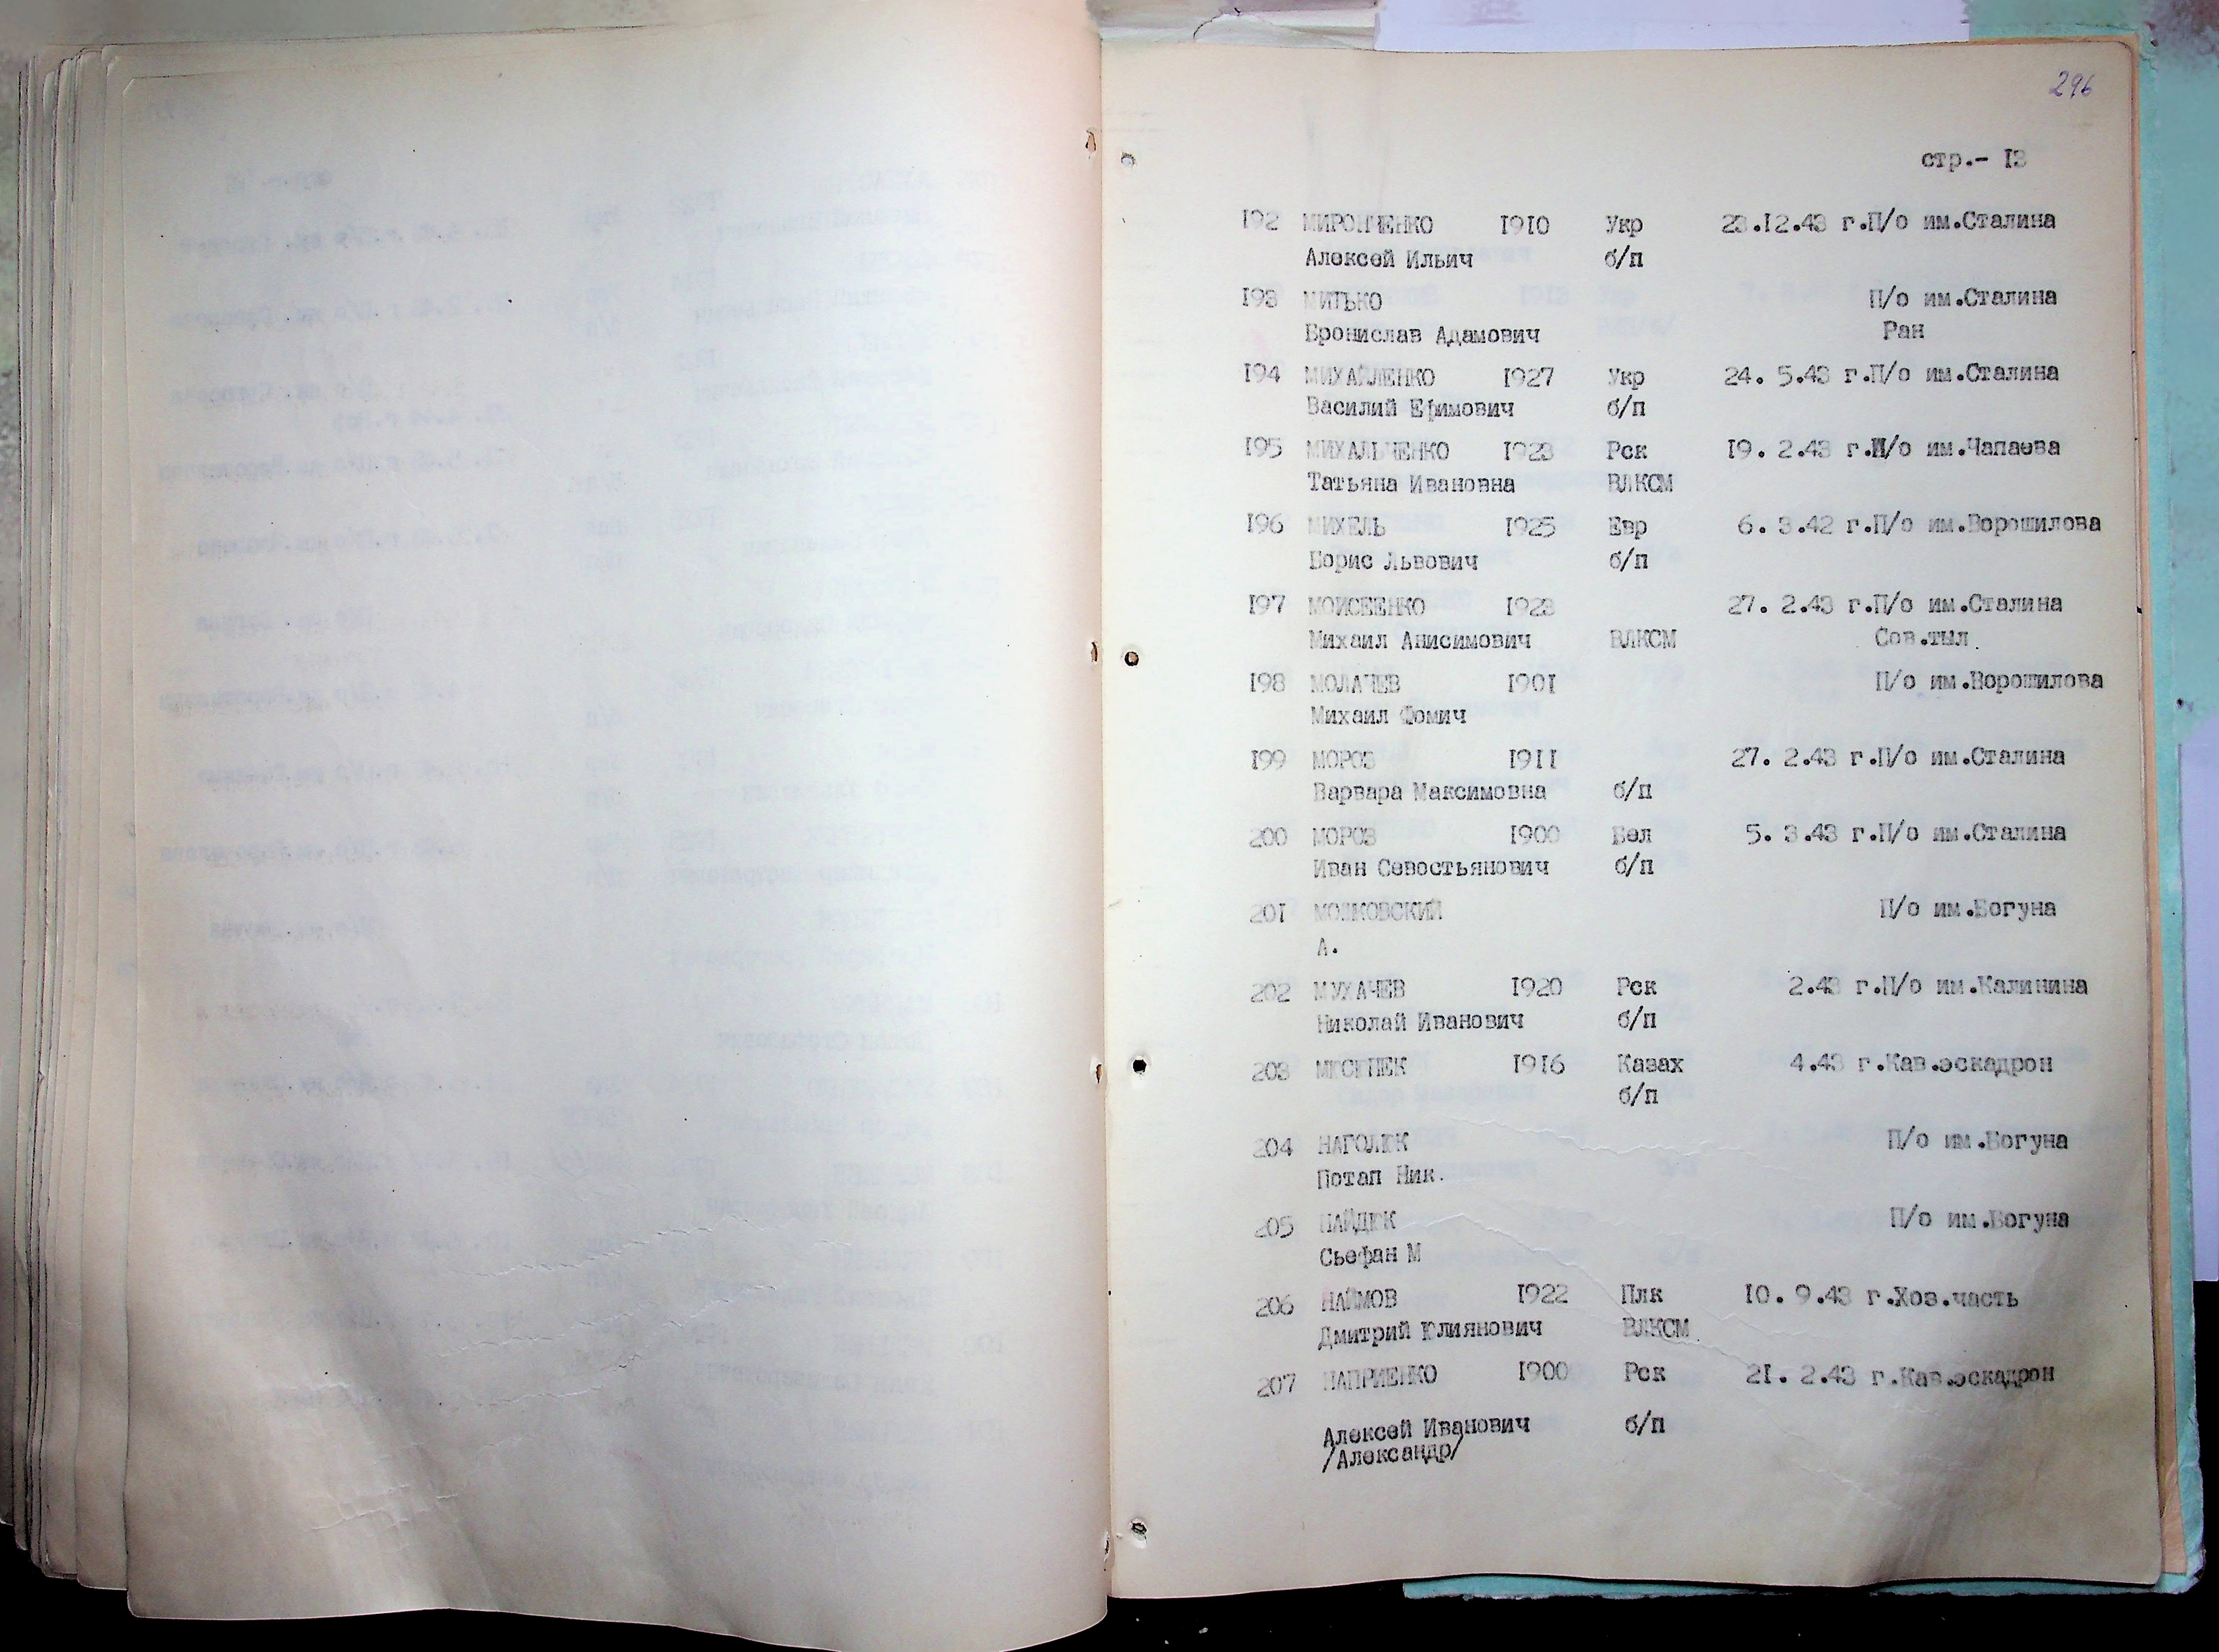 296
стр.- I3
I92 МИРОНЧЕНКО I9I0 Укр 23.I2.43 г.П/о им.Сталина
Алексей Ильич б/п
I93 МИТЬКО П/о им.Сталина
Бронислав Адамович Ран
I94 МИХАЙЛЕНКО I927 Укр 24. 5.43 г.П/о им.Сталина
Василий Ефимович б/п
I95 МИХАЛЬЧЕНКО I923 Рск I9. 2.43 г.П/о им.Чапаева
Татьяна Ивановна ВЛКСМ
I96 МИХЕЛЬ I925 Евр 6. 3.42 г.П/о им.Ворошилова
Борис Львович б/п
I97 МОИСЕЕНКО I923 27. 2.43 г.П/о им.Сталина
Михаил Анисимович ВЛКСМ Сов.тыл.
I98 МОЛАЧЕВ I90I П/о им.Ворошилова
Михаил Фомич
I99 МОРОЗ I9II 27. 2.43 г.П/о им.Сталина
Варвара Максимовна б/п
200 МОРОЗ I900 Бел 5. 3.43 г.П/о им.Сталина
Иван Севостьянович б/п
20I П/о им.Богуна
А.
202 МУХАЧЕВ I920 Рск 2.43 г.П/о им.Калинина
Николай Иванович б/п
203 I9I6 Казах 4.43 г.Кав.эскадрон
б/п
204 НАГОЛЮК П/о им.Богуна
Потап Ник.
205 НАЙДЮК П/о им.Богуна
Сьефан М
206 НАЙМОВ I922 Плк I0. 9.43 г.Хоз.часть
Дмитрий Юлиянович ВЛКСМ.
207 НАПРИЕНКО I900 Рск 2I. 2.43 г.Кав.эскадрон
Алексей Иванович б/п
/Александр/